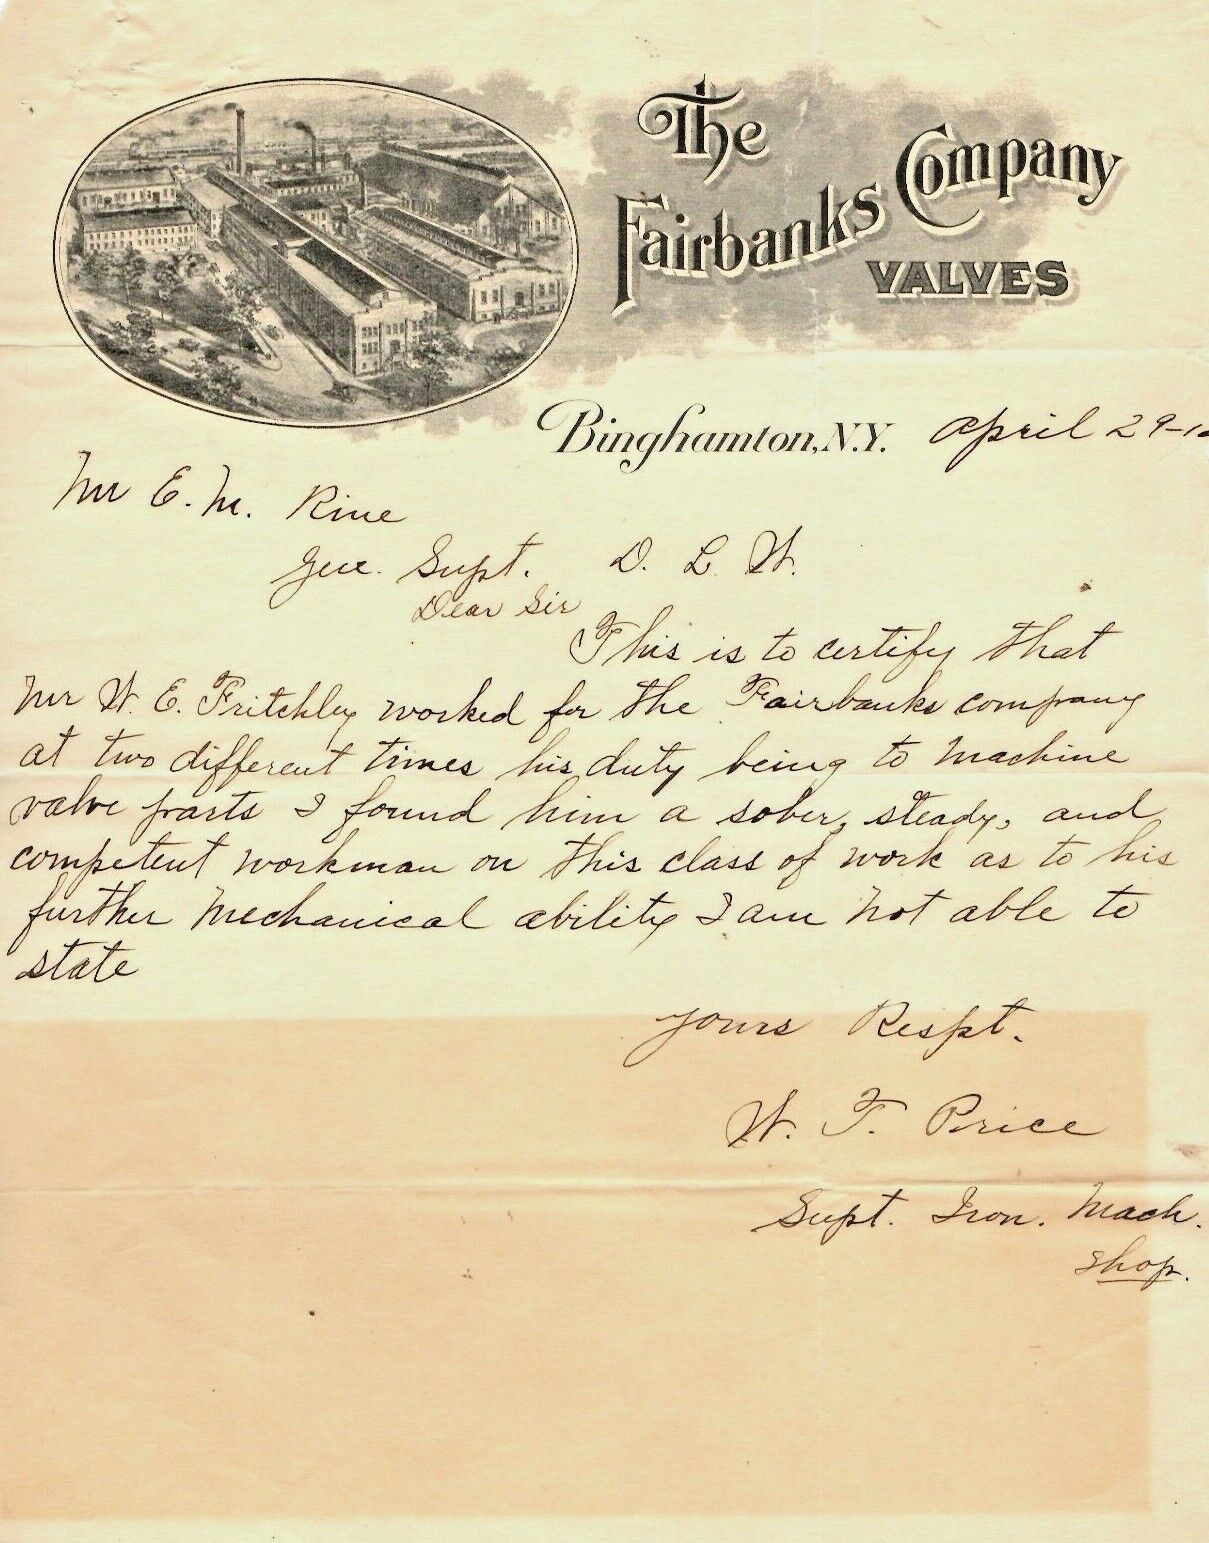 The
Fairbanks Company
VALVES
Binghamton, N.Y. April 29-1
Mr E. M. Rine
Gen. Supt. D. L. W.
Dear Sir
This is to certify that
Mr W. E. Fritchley worked for the Fairbanks company
at two different times his duty being to machine
valve parts I found him a sober, steady, and
competent workman on this class of work as to his
further mechanical ability I am not able to
state
Yours Respt.
W. F. Price
Supt. Iron. Mach.
Shop.